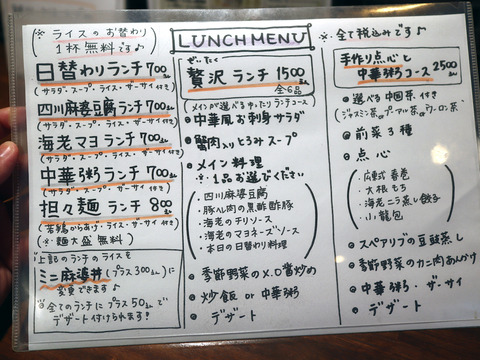 (※ ライスのお替わり
1杯無料です♪)
日替わりランチ700
(サラダ・スープ・ライス・ザーサイ付き)
四川麻婆豆腐ランチ700
(サラダ・スープ・ライス・ザーサイ付き)
海老マヨランチ700
(サラダ・スープ・ライス・ザーサイ付き)
中華粥ランチ700
(サラダ・スープ・ザーサイ付き)
担々麺ランチ800
からあげ・ライス・ザーサイ付き)
(※ 麺大盛無料)
上記のランチのライスを
ミニ麻婆丼(プラス300)に
変更できます♪
全てのランチにプラス50で
デザート付けられます!
LUNCH MENU
ぜいたく
贅沢ランチ1500
全6品
(メインが選べるゆったりランチコース)
中華風お刺身サラダ
蟹肉入りとろみスープ
メイン料理
※1品お選びください
・四川麻婆豆腐
・豚ヒレ肉の黒酢酢豚
・海老のチリソース
・海老のマヨネーズソース
・本日の日替わり料理
季節野菜のX.O醤炒め
炒飯 or 中華粥
デザート
※全て税込みです♪
手作り点心と
中華粥コース2500
選べる中国茶付き
(ジャスミン茶orプーアル茶orウーロン茶)
前菜3種
点心
・広東式春巻
・大根もち
・海老ニラ蒸し餃子
・小龍包
スペアリブの豆鼓蒸し
季節野菜のカニ肉あんかけ
中華粥・ザーサイ
デザート